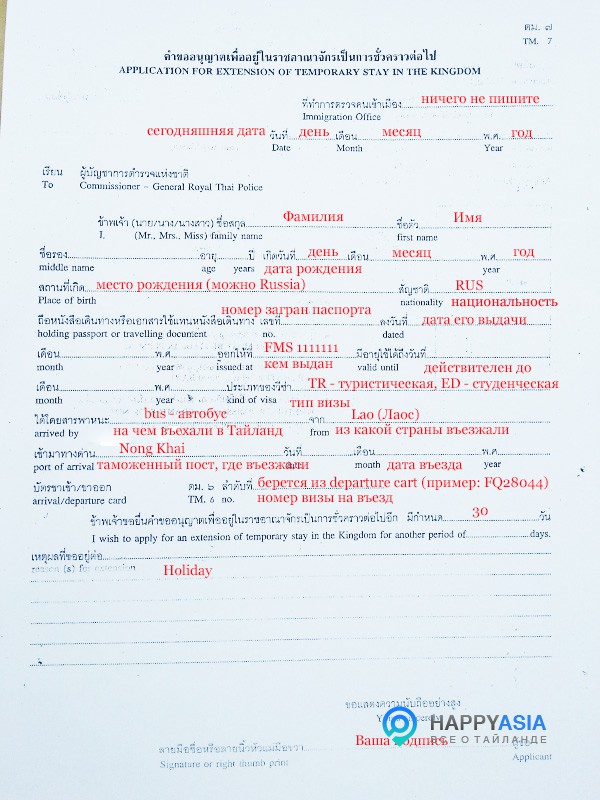 ตม. ๗
TM. 7
คำขออนุญาตเพื่ออยู่ในราชอาณาจักรเป็นการชั่วคราวต่อไป
APPLICATION FOR EXTENSION OF TEMPORARY STAY IN THE KINGDOM
ที่ทำการตรวจคนเข้าเมือง ничего не пишите
Immigration Office
сегодняшняя дата วันที่ день เดือน месяц พ.ศ. год
Date Month Year
เรียน ผู้บัญชาการตำรวจแห่งชาติ
To Commissioner – General Royal Thai Police
ข้าพเจ้า (นาย/นาง/นางสาว) ชื่อสกุล Фамилия ชื่อตัว Имя
I, (Mr., Mrs., Miss) family name first name
ชื่อรอง อายุ ปี เกิดวันที่ день เดือน месяц พ.ศ. год
middle name age years дата рождения year
สถานที่เกิด место рождения (можно Russia) สัญชาติ RUS
Place of birth nationality национальность
номер загран паспорта
ถือหนังสือเดินทางหรือเอกสารใช้แทนหนังสือเดินทาง เลขที่ ลงวันที่ дата его выдачи
holding passport or travelling document no. dated
เดือน พ.ศ. ออกให้ที่ FMS 1111111 มีอายุใช้ได้ถึงวันที่
month year issued at кем выдан valid until действителен до
เดือน พ.ศ. ประเภทของวีซ่า TR - туристическая, ED - студенческая
month year kind of visa тип визы
ได้โดยสารพาหนะ bus - автобус จาก Lao (Лаос)
arrived by на чем въехали в Тайланд from из какой страны въезжали
เข้ามาทางด่าน Nong Khai วันที่ เดือน พ.ศ.
port of arrival таможенный пост, где въезжали month дата въезда year
บัตรขาเข้า/ขาออก ตม. ๖ ลำดับที่ берется из departure cart (пример: FQ28044)
arrival/departure card TM. 6 no. номер визы на въезд
ข้าพเจ้าขอยื่นคำขออนุญาตเพื่ออยู่ในราชอาณาจักรเป็นการชั่วคราวต่อไปอีก มีกำหนด 30 วัน
I wish to apply for an extension of temporary stay in the Kingdom for another period of days.
เหตุผลที่ขออยู่ต่อ
reason (s) for extension Holiday
ขอแสดงความนับถืออย่างสูง
HAPPYASIA
ВСЕ О ТАЙЛАНДЕ
ลายมือชื่อหรือลายนิ้วหัวแม่มือขวา Ваша подпись
Signature or right thumb print Applicant